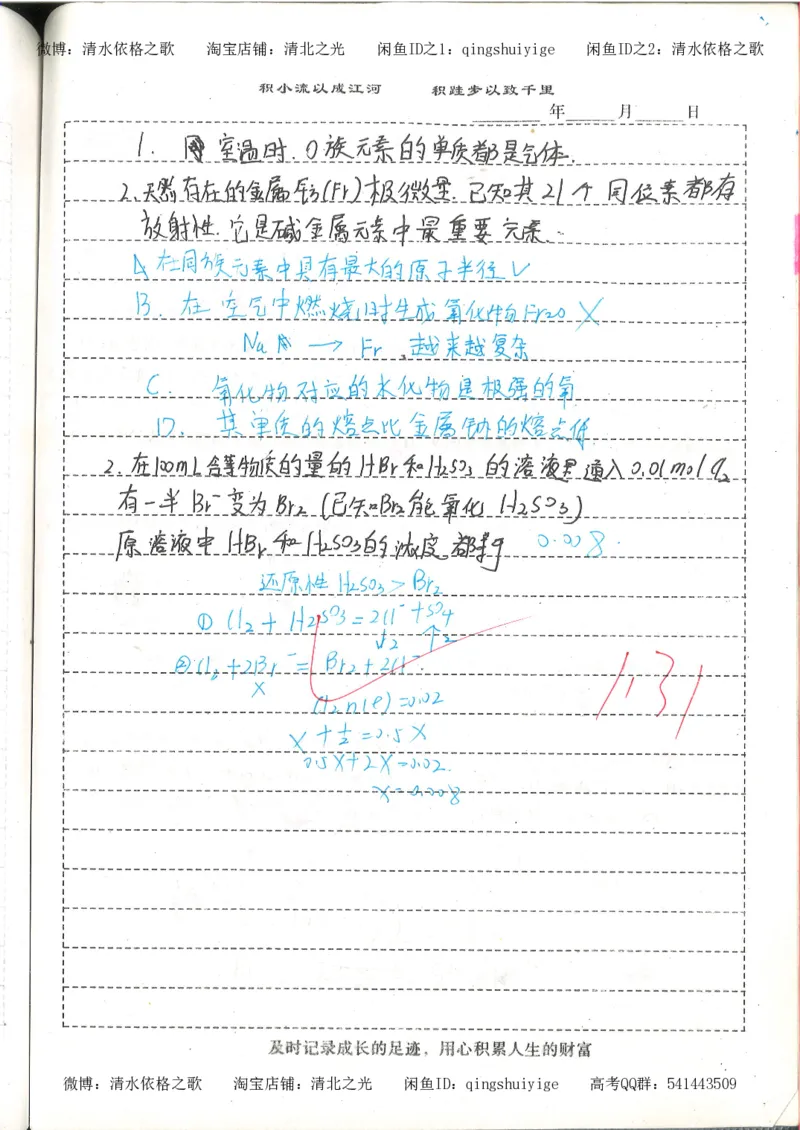 微博：清水依格之歌 淘宝店铺：清北之光 闲鱼ID之1：qingshuiyige 闲鱼ID之2：清水依格之歌
积小流以成江河 积跬步以致千里
年 月 日
1. 室温时.0族元素的单质都是气体.
2.天然存在的金属钫(Fr)极微量.已知其21个同位素都有
放射性.它是碱金属元素中最重要元素.
A在同族元素中具有最大的原子半径√
B. 在空气中燃烧时生成氧化物Fr2O X
Na → Fr 越来越复杂
C. 氧化物对应的水化物是极强的氧
D. 其单质的熔点比金属钠的熔点低
2.在100mL含等物质的量的HBr和H2SO3的溶液里通入0.01mol Cl2
有一半Br⁻变为Br2(已知Br2能氧化H2SO3)
原溶液中HBr和H2SO3的浓度都等于 0.008
还原性H2SO3>Br2
① Cl2+H2SO3=2Cl⁻+SO4
↓2 ↑2
②Cl2+2Br⁻=Br2+2Cl⁻
x
=0.02
X+½=0.5X
0.5X+2X=0.02.
x=0.008
1.31
及时记录成长的足迹，用心积累人生的财富
微博：清水依格之歌 淘宝店铺：清北之光 闲鱼ID：qingshuiyige 高考QQ群：541443509